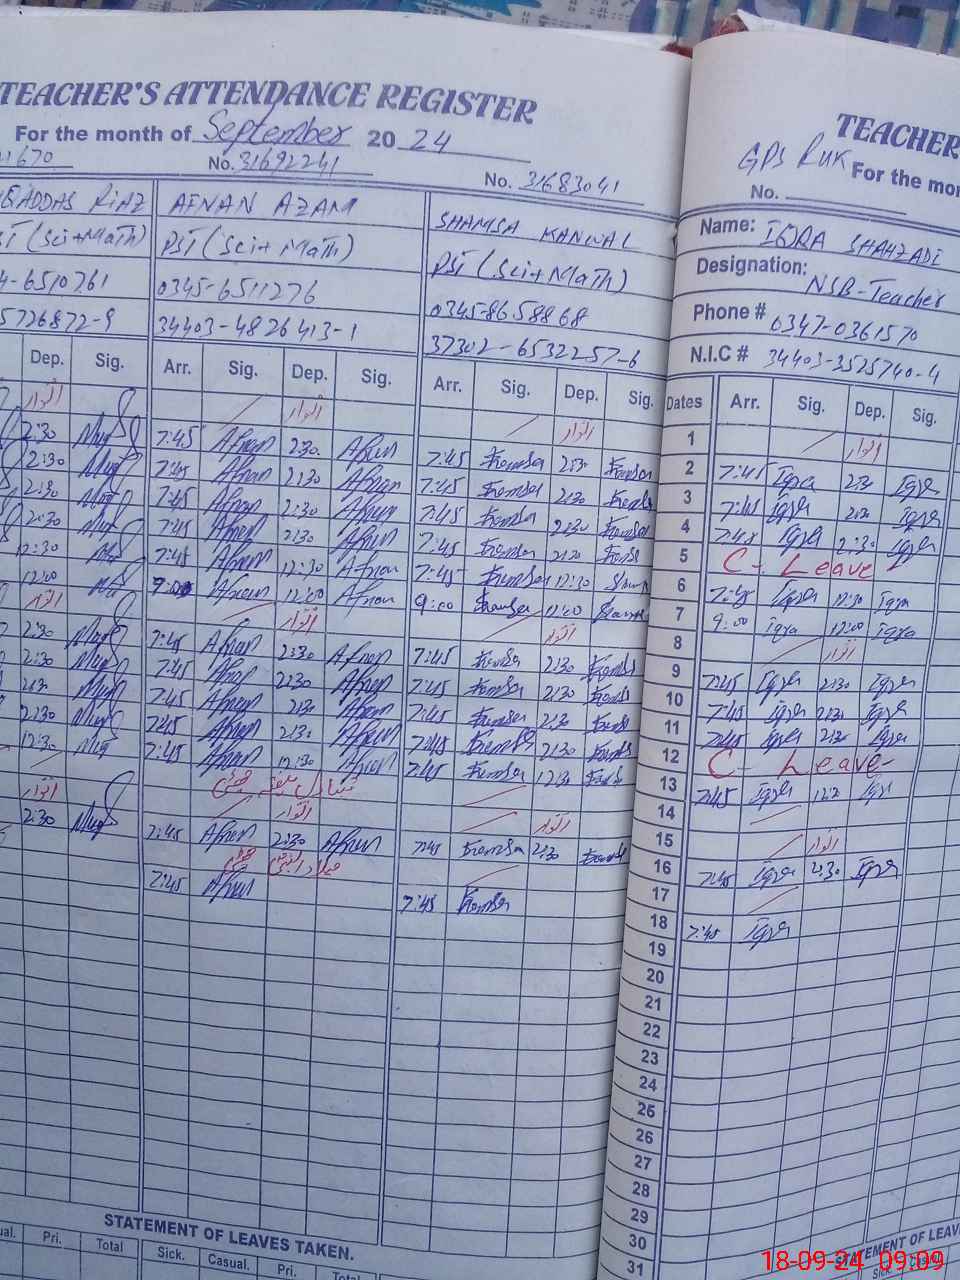 TEACHER'S ATTENDANCE REGISTER
For the month of September 20 24
1670 No. 31692241 No. 31683041
RIAZ AFNAN AZAM SHAMSA KANWAL
(Sci+Math) PST (Sci+Math) PST (Sci+Math)
4-6510761 0345-6511276 0345-8658868
5726872-9 34403-4826413-1 37302-6532257-6
Dep. Sig. Arr. Sig. Dep. Sig. Arr. Sig. Dep. Sig.
اتوار اتوار اتوار
2:30 7:45 Afnan 2:30 Afnan 7:45 Shamsa 2:30 Shamsa
2:30 7:45 Afnan 2:30 Afnan 7:45 Shamsa 2:30 Shamsa
2:30 7:45 Afnan 2:30 Afnan 7:45 Shamsa 2:30 Shamsa
2:30 7:45 Afnan 2:30 Afnan 7:45 Shamsa 2:30 Shamsa
12:30 7:45 Afnan 12:30 Afnan 7:45 Shamsa 12:30 Sham
12:00 9:00 Afnan 12:00 Afnan 9:00 Shamsa 12:00 Shamsa
اتوار اتوار اتوار
2:30 7:45 Afnan 2:30 Afnan 7:45 Shamsa 2:30 Shamsa
2:30 7:45 Afnan 2:30 Afnan 7:45 Shamsa 2:30 Shamsa
2:30 7:45 Afnan 2:30 Afnan 7:45 Shamsa 2:30 Shamsa
2:30 7:45 Afnan 2:30 Afnan 7:45 Shamsa 2:30 Shamsa
12:30 7:45 Afnan 12:30 Afnan 7:45 Shamsa 12:30 Shamsa
ہفتہ چھٹی
اتوار اتوار اتوار
2:30 7:45 Afnan 2:30 Afnan 7:45 Shamsa 2:30 Shamsa
میلاد النبی چھٹی
7:45 Afnan 7:45 Shamsa
STATEMENT OF LEAVES TAKEN.
Pri. Total Sick. Casual. Pri. Total
TEACHER
GPS RUK For the mon
No.
Name: IQRA SHAHZADI
Designation: NSB-Teacher
Phone # 0347-0361570
N.I.C # 34403-3525740-4
Dates Arr. Sig. Dep. Sig.
1 اتوار
2 7:45 Iqra 2:30 Iqra
3 7:45 Iqra 2:30 Iqra
4 7:45 Iqra 2:30 Iqra
5 C- Leave
6 7:45 Iqra 12:30 Iqra
7 9:00 Iqra 12:00 Iqra
8 اتوار
9 7:45 Iqra 2:30 Iqra
10 7:45 Iqra 2:30 Iqra
11 7:45 Iqra 2:30 Iqra
12 C- Leave-
13 7:45 Iqra Iqra
14
15 اتوار
16 7:45 Iqra 2:30 Iqra
17
18 7:45 Iqra
19
20
21
22
23
24
25
26
27
28
29
30
31
STATEMENT OF LEAVES
18-09-24 09:09